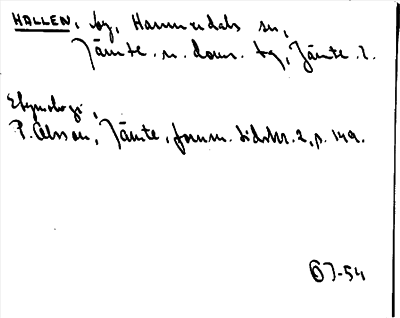 HALLEN, by, Hammerdals sn,
Jämte. n. doms. tg, Jämtl. l.
Etymologi,
P. Olsson, Jämtl. fornm. tidskr. 2, p. 149.
OJ-54